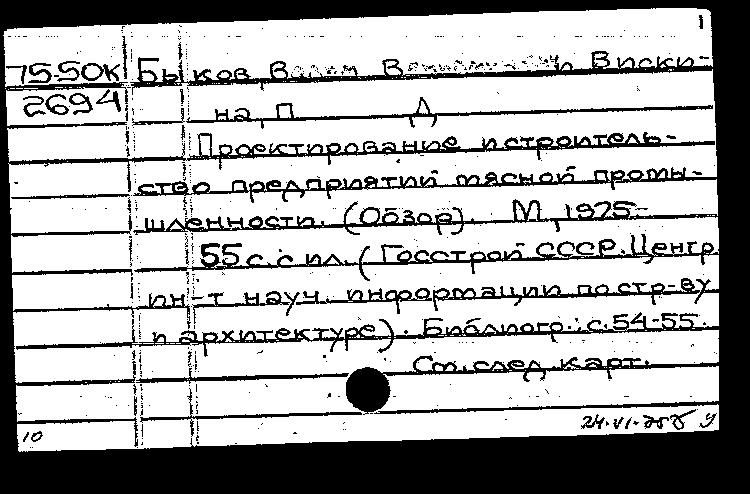 1
75-50к Быков, Вадим В и Виски-
2694 на, П Д
Проектирование и строитель-
ство предприятий мясной промы-
шленности. (Обзор). М, 1975-
55 с. с ил. (Госстрой СССР. Центр.
ин-т науч. информации по стр-ву
и архитектуре). Библиогр.: с. 54-55.
См. след. карт.
10